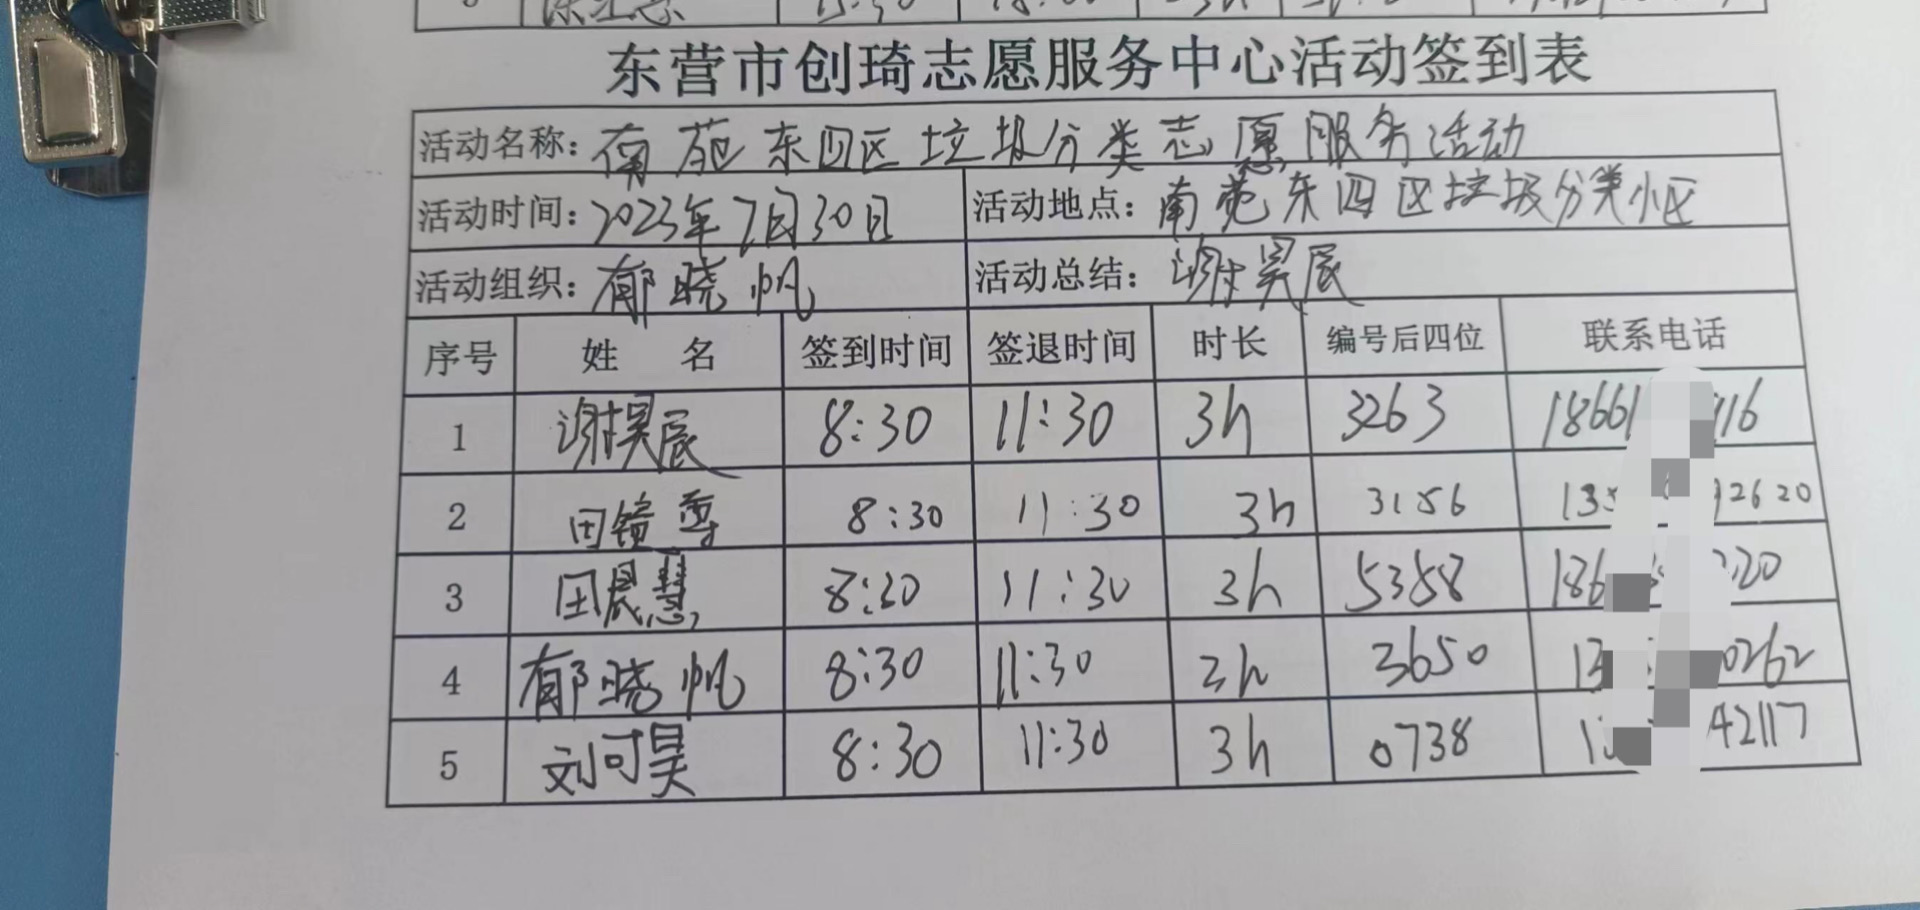 东营市创琦志愿服务中心活动签到表
活动名称：南苑东四区垃圾分类志愿服务活动
活动时间：2023年7月30日 活动地点：南苑东四区垃圾分类小区
活动组织：郁晓帆 活动总结：谢昊辰
序号 姓 名 签到时间 签退时间 时长 编号后四位 联系电话
1 谢昊辰 8:30 11:30 3h 3263 18661 916
2 田镜尊 8:30 11:30 3h 3156 135 92620
3 田晨慧 8:30 11:30 3h 5358 186 220
4 郁晓帆 8:30 11:30 3h 3650 13 0262
5 刘可昊 8:30 11:30 3h 0738 1 42117